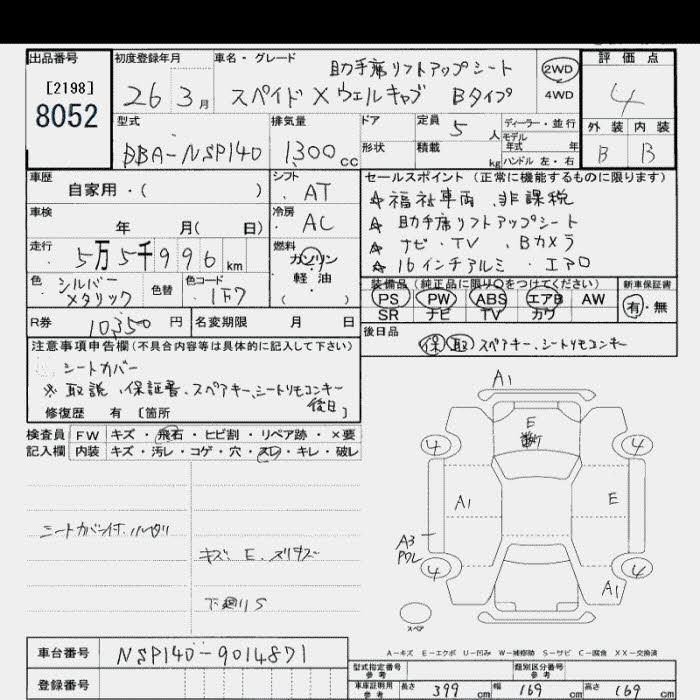 出品番号
[2198]
8052
初度登録年月
26 3 月
車名・グレード
助手席リフトアップシート
スペイド X ウェルキャブ Bタイプ
2WD
4WD
評価点
4
外装 内装
B B
型式
DBA-NSP140
排気量
1300 cc
ドア
形状
定員 5 人
積載 kg
ディーラー・並行
モデル
年式 年
ハンドル 左・右
車歴
自家用・( )
シフト
AT
車検
年 月( 日)
冷房
AC
走行
5万5千996 km
燃料
ガソリン
軽油
・( )
色
シルバー
メタリック
色替
色コード
1F7
R券 10350 円
名変期限 月 日
セールスポイント(正常に機能するものに限ります)
☆ 福祉車両、非課税
☆ 助手席リフトアップシート
☆ ナビ・TV、Bカメラ
☆ 16インチアルミ・エアロ
装備品(純正品に限り○をつけてください)
PS PW ABS エアB AW
SR ナビ TV カワ
新車保証書
有・無
後日品
保 取 スペアキー、シートリモコンキー
注意事項申告欄(不具合内容等は具体的に記入して下さい)
シートカバー
※ 取説、保証書、スペアキー、シートリモコンキー
後日
修復歴 有 [箇所
検査員
記入欄
FW キズ・飛石・ヒビ割・リペア跡・×要
内装 キズ・汚レ・コゲ・穴・スレ・キレ・破レ
シートカバー付
キズ、E、スリキズ
下廻りS
A1
E
4
4
A1
E
A3
4
4
A1
スペア
A-キズ E-エクボ U-凹み W-補修跡 S-サビ C-腐食 XX-交換済
車台番号
NSP140-9014871
登録番号
型式指定番号
参考
類別区分番号
参考
車庫証明用
参考
長さ 399 cm 幅 169 cm 高さ 169 cm